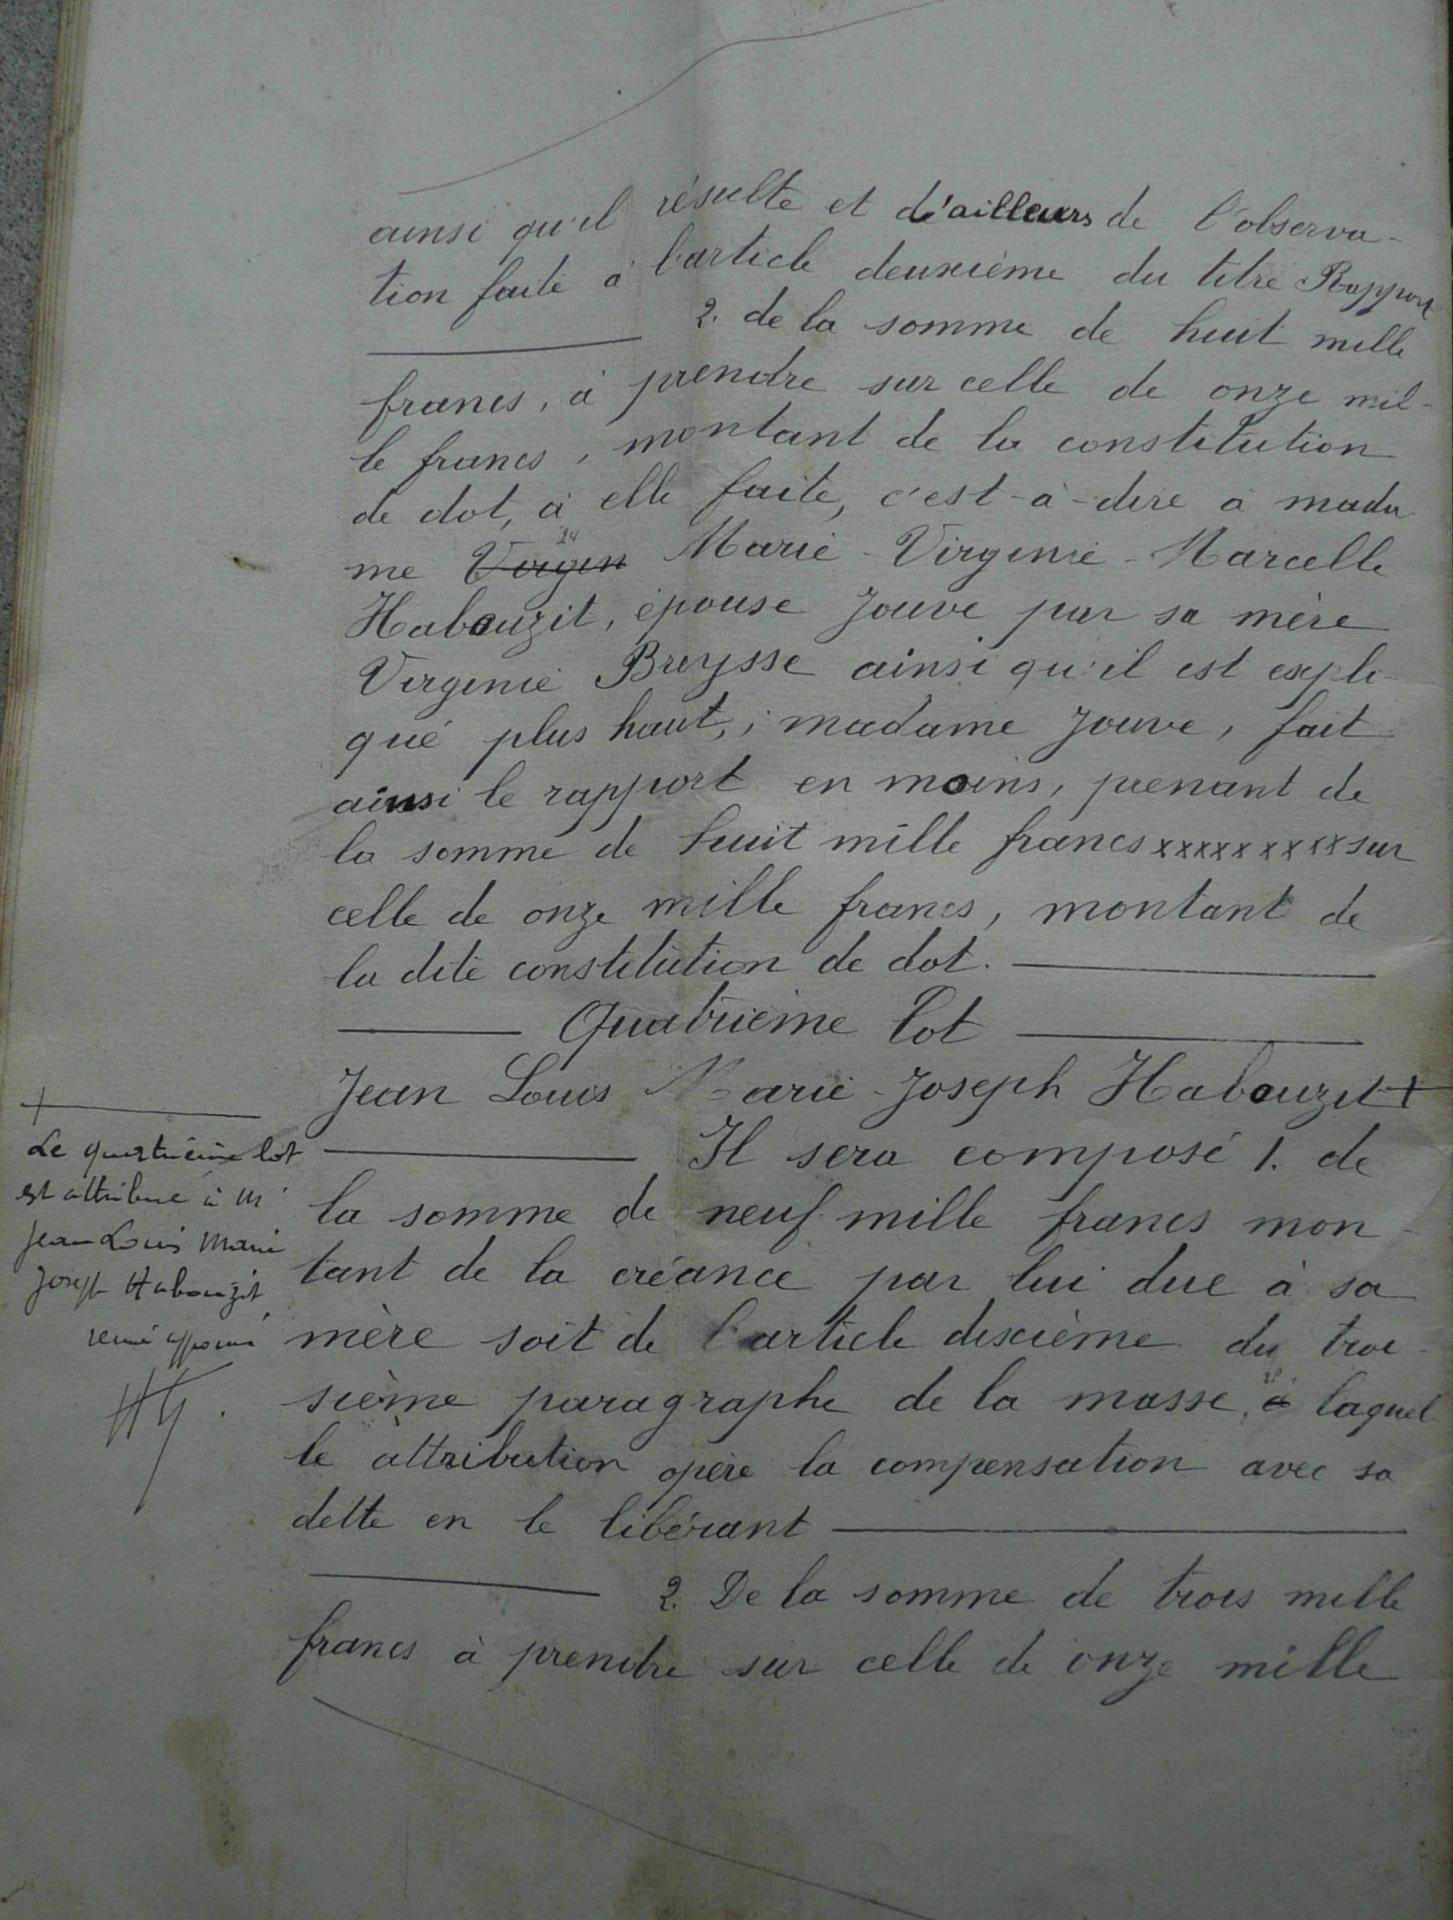 ainsi qu'il résulte et d'ailleurs de l'observa-
tion faite à l'article deuxième du titre Rapport
2. de la somme de huit mille
francs, à prendre sur celle de onze mil-
le francs, montant de la constitution
de dot, à elle faite, c'est-à-dire à mada
me Virgin Marie-Virginie-Marcelle
Habouzit, épouse Jouve par sa mère
Virginie Breysse ainsi qu'il est expli-
qué plus haut, ; madame Jouve, fait
ainsi le rapport en moins, prenant de
la somme de huit mille francs xxxxxxxxxx sur
celle de onze mille francs, montant de
la dite constitution de dot.
Quatrième lot
Jean Louis Marie-Joseph Habouzit +
Il sera composé 1. de
la somme de neuf mille francs mon-
tant de la créance par lui due à sa
mère soit de l'article dixième du troi-
sième paragraphe de la masse, laquel
le attribution opère la compensation avec sa
dette en le libérant
2. De la somme de trois mille
francs à prendre sur celle de onze mille
+
Le quatrième lot
est attribué à Mr
Jean Louis Marie
Joseph Habouzit